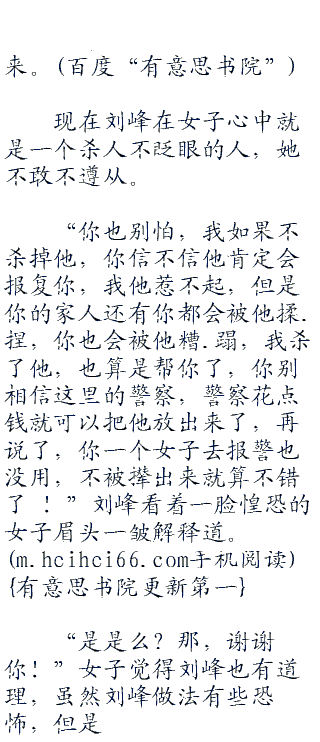 来。(百度“有意思书院”)
现在刘峰在女子心中就
是一个杀人不眨眼的人，她
不敢不遵从。
“你也别怕，我如果不
杀掉他，你信不信他肯定会
报复你，我他惹不起，但是
你的家人还有你都会被他揉.
捏，你也会被他糟.蹋，我杀
了他，也算是帮你了，你别
相信这里的警察，警察花点
钱就可以把他放出来了，再
说了，你一个女子去报警也
没用，不被撵出来就算不错
了！”刘峰看着一脸惶恐的
女子眉头一皱解释道。
(m.hcihci66.com手机阅读)
{有意思书院更新第一}
“是是么？那，谢谢
你！”女子觉得刘峰也有道
理，虽然刘峰做法有些恐
怖，但是